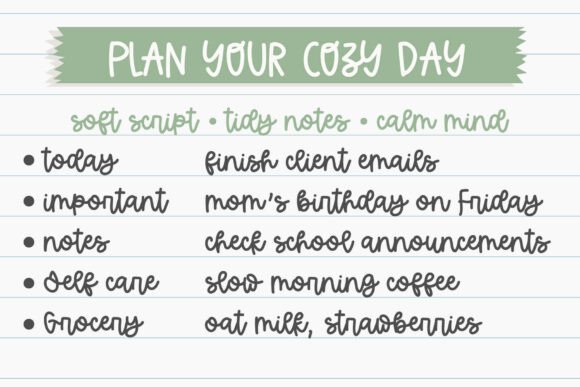 PLAN YOUR COZY DAY
soft script • tidy notes • calm mind
• today finish client emails
• important mom's birthday on Friday
• notes check school announcements
• Self care slow morning coffee
• Grocery oat milk, strawberries